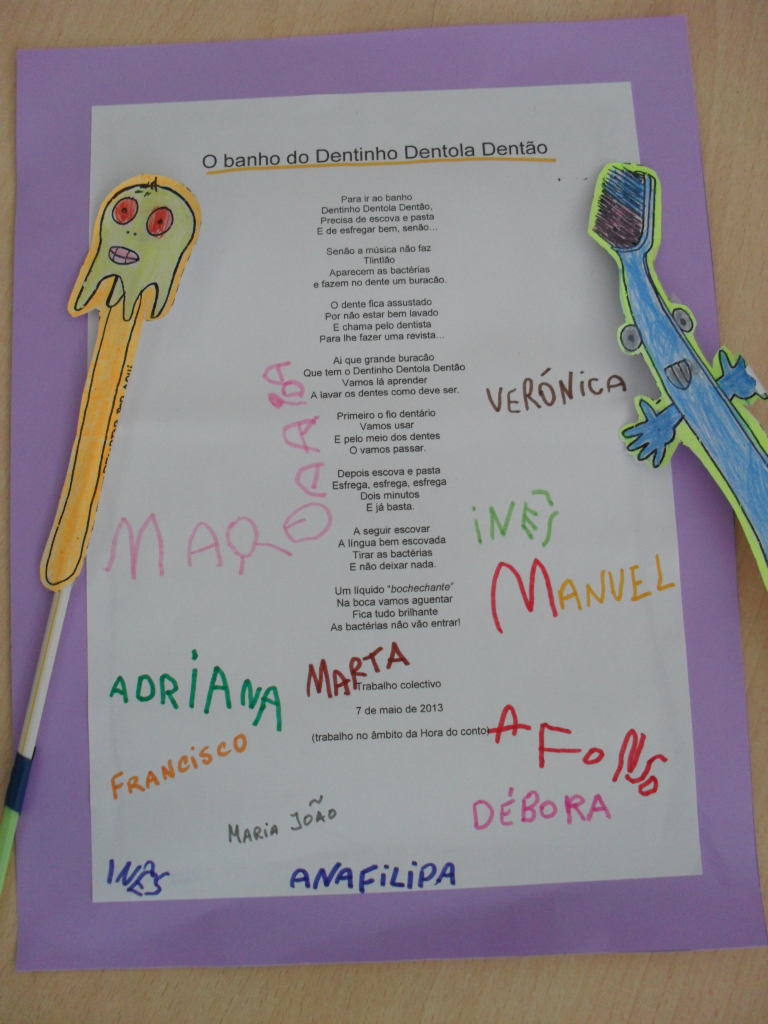 O banho do Dentinho Dentola Dentão
Para ir ao banho
Dentinho Dentola Dentão,
Precisa de escova e pasta
E de esfregar bem, senão...
Senão a música não faz
Tlintlão
Aparecem as bactérias
e fazem no dente um buracão.
O dente fica assustado
Por não estar bem lavado
E chama pelo dentista
Para lhe fazer uma revista...
Ai que grande buracão
Que tem o Dentinho Dentola Dentão
Vamos lá aprender
A lavar os dentes como deve ser.
VERÓNICA
Primeiro o fio dentário
Vamos usar
E pelo meio dos dentes
O vamos passar.
Depois escova e pasta
Esfrega, esfrega, esfrega
Dois minutos
E já basta.
INÊS
A seguir escovar
A língua bem escovada
Tirar as bactérias
E não deixar nada.
MANUEL
Um líquido "bochechante"
Na boca vamos aguentar
Fica tudo brilhante
As bactérias não vão entrar!
ADRIANA
MARTA
Trabalho colectivo
7 de maio de 2013
(trabalho no âmbito da Hora do conto)
AFONSO
FRANCISCO
DÉBORA
MARIA JOÃO
INÊS
ANAFILIPA